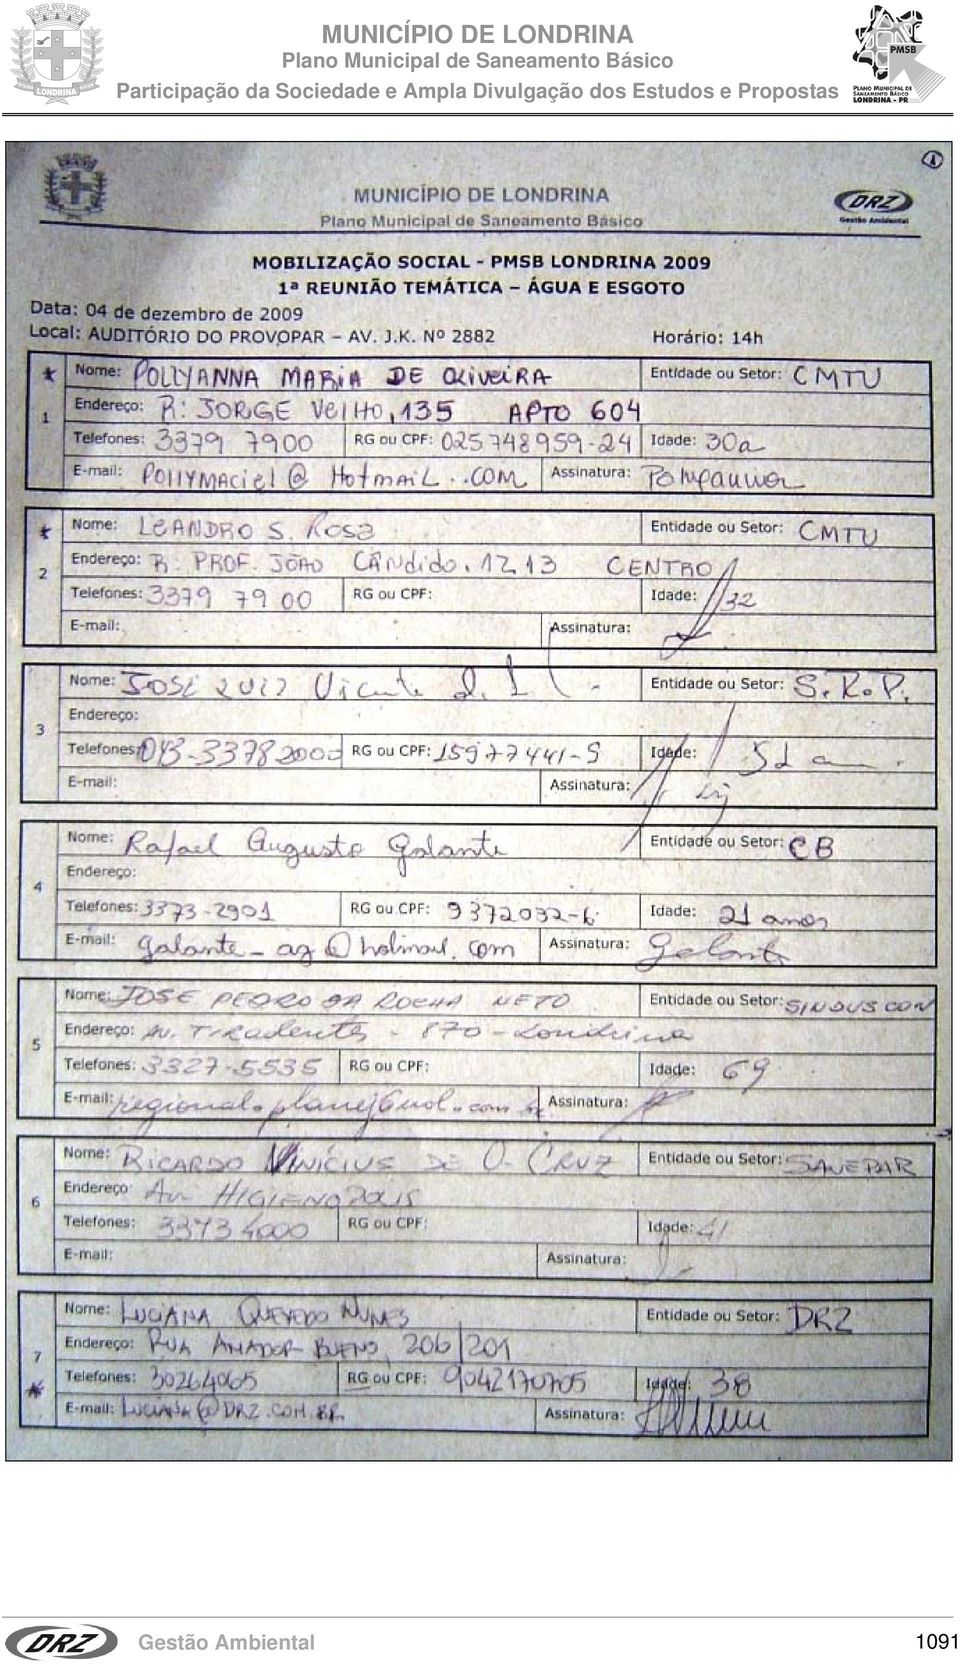 MUNICÍPIO DE LONDRINA
Plano Municipal de Saneamento Básico
Participação da Sociedade e Ampla Divulgação dos Estudos e Propostas
LONDRINA
PMSB
PLANO MUNICIPAL DE
SANEAMENTO BÁSICO
LONDRINA - PR
1
MUNICÍPIO DE LONDRINA
Plano Municipal de Saneamento Básico
DRZ
Gestão Ambiental
MOBILIZAÇÃO SOCIAL - PMSB LONDRINA 2009
1ª REUNIÃO TEMÁTICA – ÁGUA E ESGOTO
Data: 04 de dezembro de 2009
Local: AUDITÓRIO DO PROVOPAR – AV. J.K. Nº 2882 Horário: 14h
* 1
Nome: POLLYANNA MARIA DE OLIVEIRA Entidade ou Setor: CMTU
Endereço: R: JORGE VELHO, 135 APTO 604
Telefones: 3379 7900 RG ou CPF: 025748959-24 Idade: 30a
E-mail: POLLYMACIEL@HOTMAIL..COM Assinatura:
* 2
Nome: LEANDRO S. ROSA Entidade ou Setor: CMTU
Endereço: R: PROF. JOÃO CÂNDIDO, 1213 CENTRO
Telefones: 3379 79 00 RG ou CPF: Idade: 32
E-mail: Assinatura:
3
Nome: JOSÉ LUIZ Vicente Entidade ou Setor: S.R.P.
Endereço:
Telefones: 043-33782000 RG ou CPF: 15977441-S Idade: 52
E-mail: Assinatura:
4
Nome: Rafael Augusto Galante Entidade ou Setor: CB
Endereço:
Telefones: 3373-2901 RG ou CPF: 9372032-6 Idade: 21 anos
E-mail: galante_ag@hotmail.com Assinatura: Galante
5
Nome: JOSE PEDRO DA ROCHA NETO Entidade ou Setor: SINDUSCON
Endereço: AV. Tiradentes - 870 - Londrina
Telefones: 3327-5535 RG ou CPF: Idade: 69
E-mail: Assinatura:
6
Nome: RICARDO VINÍCIUS DE O. CRUZ Entidade ou Setor: SANEPAR
Endereço: AV HIGIENOPOLIS
Telefones: 33734000 RG ou CPF: Idade: 41
E-mail: Assinatura:
7 *
Nome: LUCIANA QUEVEDO NUNES Entidade ou Setor: DRZ
Endereço: RUA AMADOR BUENO, 206/201
Telefones: 30264065 RG ou CPF: 9042170705 Idade: 38
E-mail: LUCIANA@DRZ.COM.BR Assinatura:
DRZ Gestão Ambiental 1091